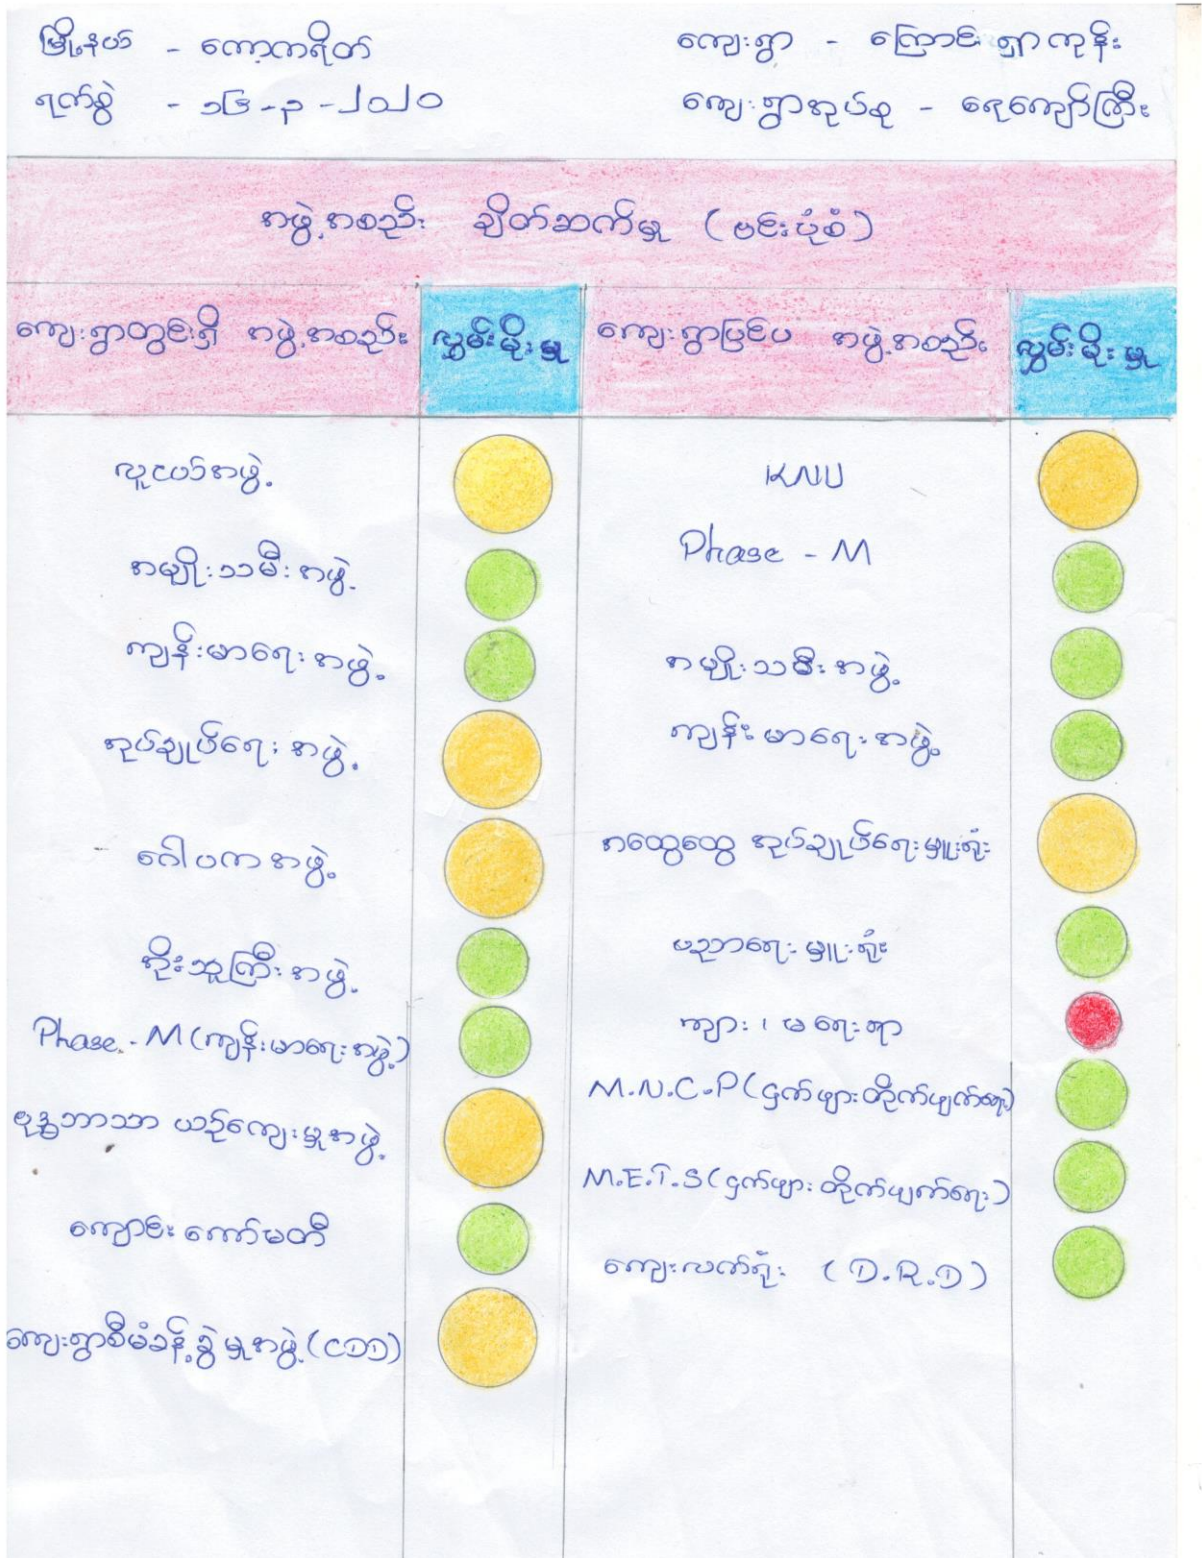 မြို့နယ် - ကော့ကရိတ် ကျေးရွာ - ကြောင်းရှာကုန်း
ရက်စွဲ - ၁၆-၃-၂၀၂၀ ကျေးရွာအုပ်စု - ရေကျော်ကြီး
အဖွဲ့အစည်း ချိတ်ဆက်မှု (ဗင်းပုံစံ)
ကျေးရွာတွင်းရှိ အဖွဲ့အစည်း လွှမ်းမိုးမှု ကျေးရွာပြင်ပ အဖွဲ့အစည်း လွှမ်းမိုးမှု
လူငယ်အဖွဲ့ KNU
အမျိုးသမီးအဖွဲ့ Phase - M
ကျန်းမာရေးအဖွဲ့ အမျိုးသမီးအဖွဲ့
အုပ်ချုပ်ရေးအဖွဲ့ ကျန်းမာရေးအဖွဲ့
ဂေါပကအဖွဲ့ အထွေထွေ အုပ်ချုပ်ရေးမှူးရုံး
အိုးသူကြီးအဖွဲ့ ပညာရေးမှူးရုံး
Phase - M (ကျန်းမာရေးအဖွဲ့) ကျား၊ မ ရေးရာ
ဗုဒ္ဓဘာသာ ယဉ်ကျေးမှုအဖွဲ့ M.N.C.P (ငှက်ဖျားတိုက်ဖျက်ရေး)
ကျောင်းကော်မတီ M.E.T.S (ငှက်ဖျားတိုက်ဖျက်ရေး)
ကျေးရွာစီမံခန့်ခွဲမှုအဖွဲ့ (CDD) ကျေးလက်ရုံး (D.R.D)